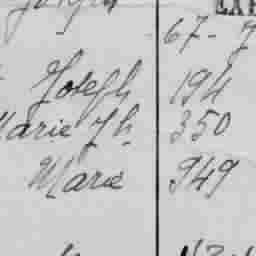 67-
Joseph 194
Marie Jh 350
Marie 949